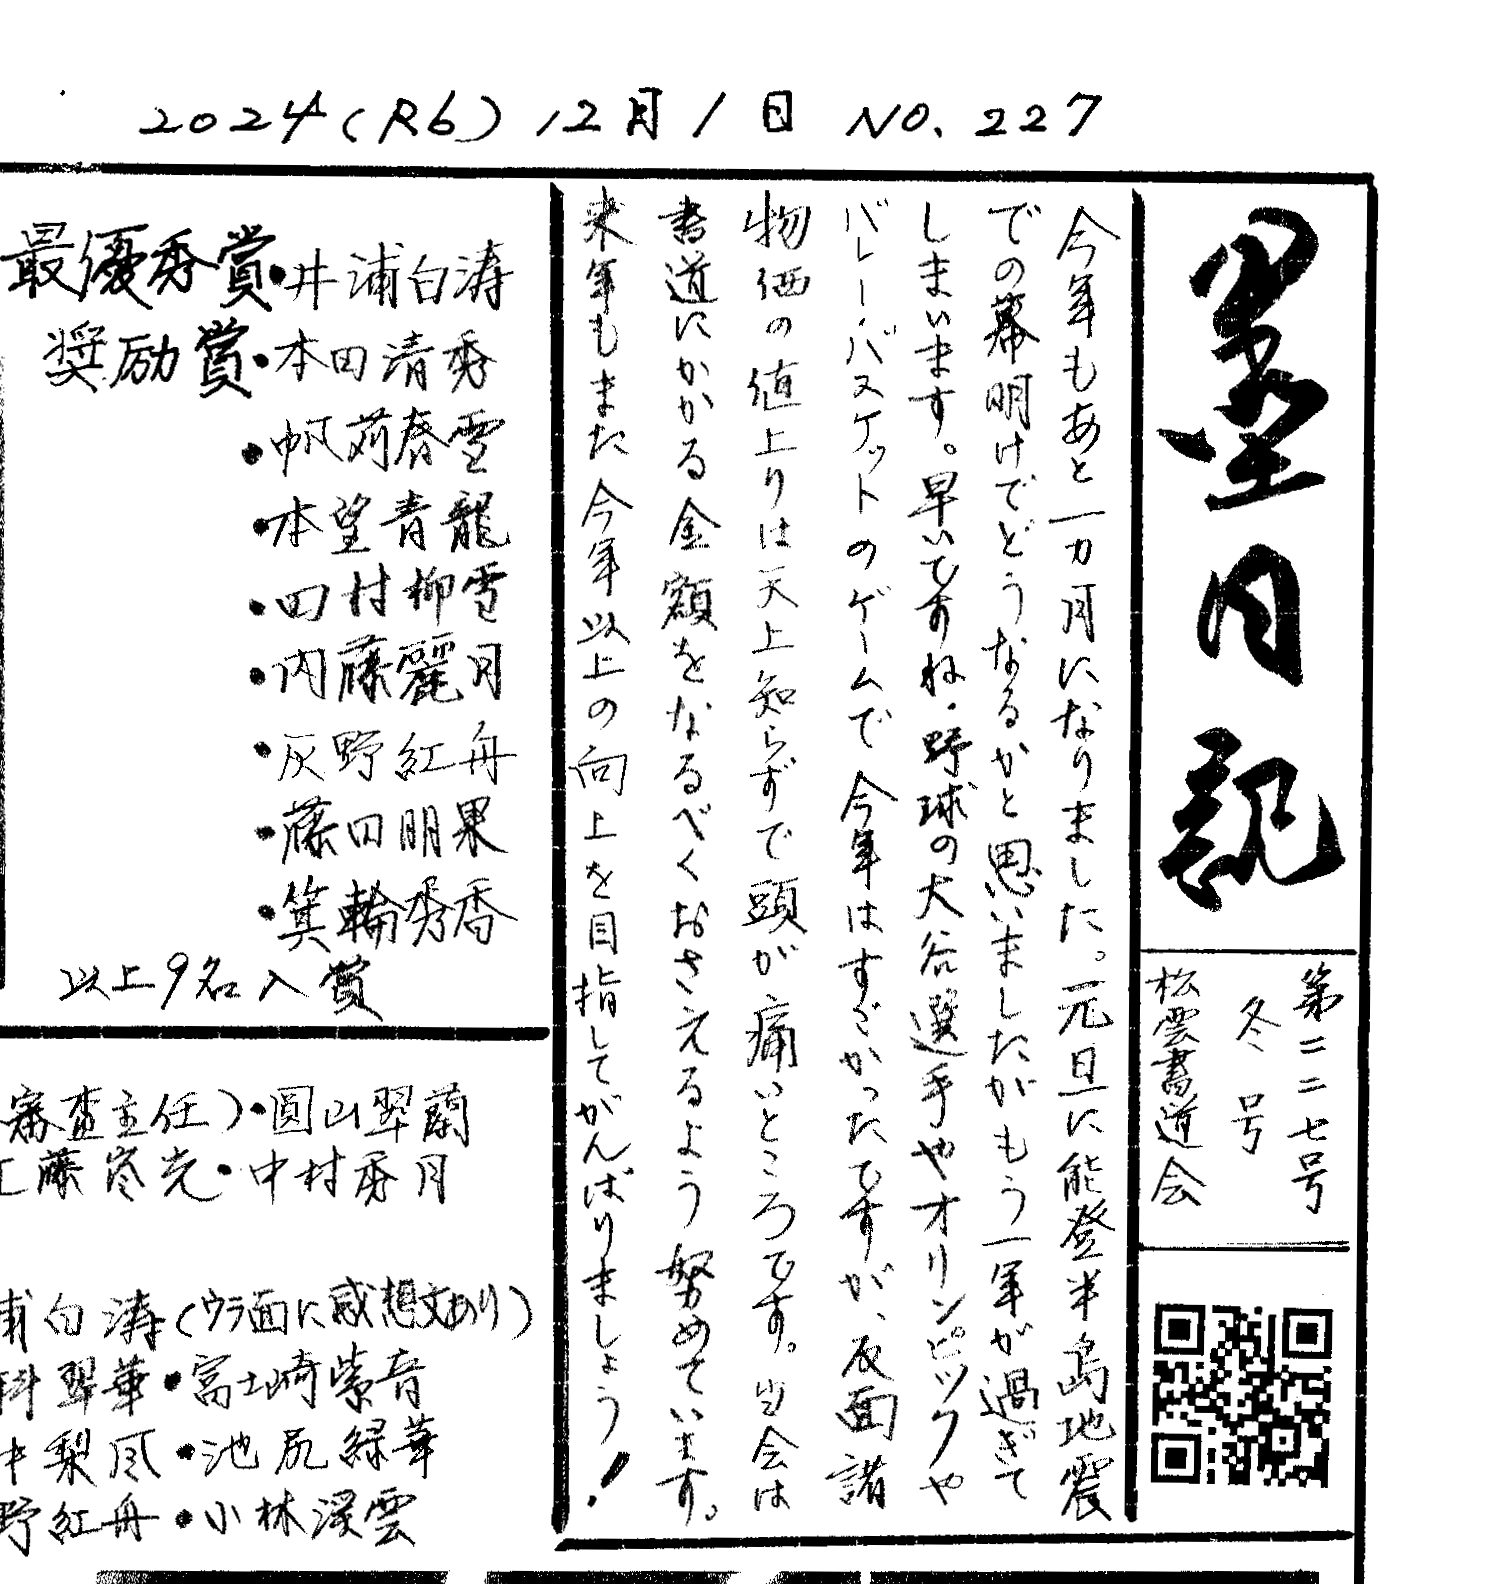 2024(R6) 12月1日 NO.227
墨月記
第二二七号
冬号
松雲書道会
今年もあと一カ月になりました。元旦に能登半島地震
での幕明けでどうなるかと思いましたがもう一年が過ぎて
しまいます。早いですね・野球の大谷選手やオリンピックや
バレー・バスケットのゲームで今年はすごかったですが、反面諸
物価の値上りは天上知らずで頭が痛いところです。当会は
書道にかかる金額をなるべくおさえるよう努めています。
来年もまた今年以上の向上を目指してがんばりましょう!
最優秀賞・井浦白涛
奨励賞・本田清秀
・帆苅春雪
・本望青龍
・田村柳雪
・内藤麗月
・灰野紅舟
・藤田明果
・箕輪秀香
以上9名入賞
審査主任)・圓山翠蘭
工藤岑光・中村秀月
浦白涛(ウラ面に感想文あり)
科翠華・富士崎紫音
中梨風・池尻緑華
野紅舟・小林渓雲